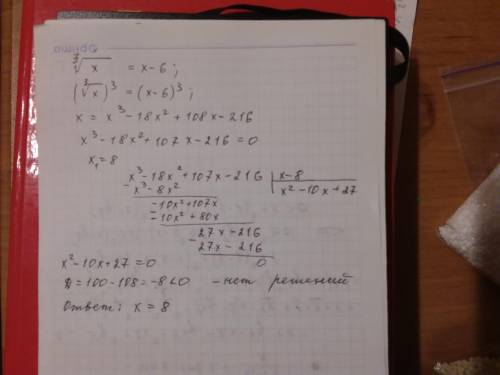 optima
∛x = x-6;
(∛x)³ = (x-6)³;
x = x³-18x²+108x-216
x³-18x²+107x-216=0
x₁=8
x³-18x²+107x-216 | x-8
- x³-8x² | x²-10x+27
-10x²+107x
- -10x²+80x
27x-216
- 27x-216
0
x²-10x+27=0
D=100-108=-8<0 -нет решений
Ответ: x=8